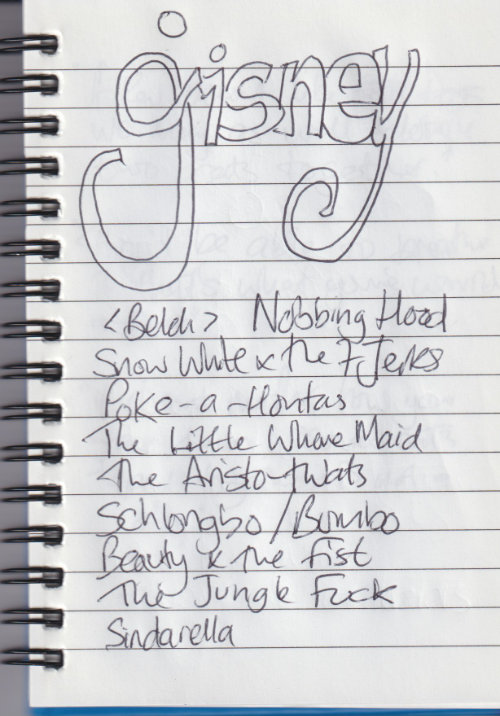 jisney
<Belch> Nobbing Hood
Snow White & the 7 Jerks
Poke-a-Hontas
The Little Whore Maid
The Aristo-twats
Schlongbo/Bumbo
Beauty & the Fist
The Jungle Fuck
Sindarella